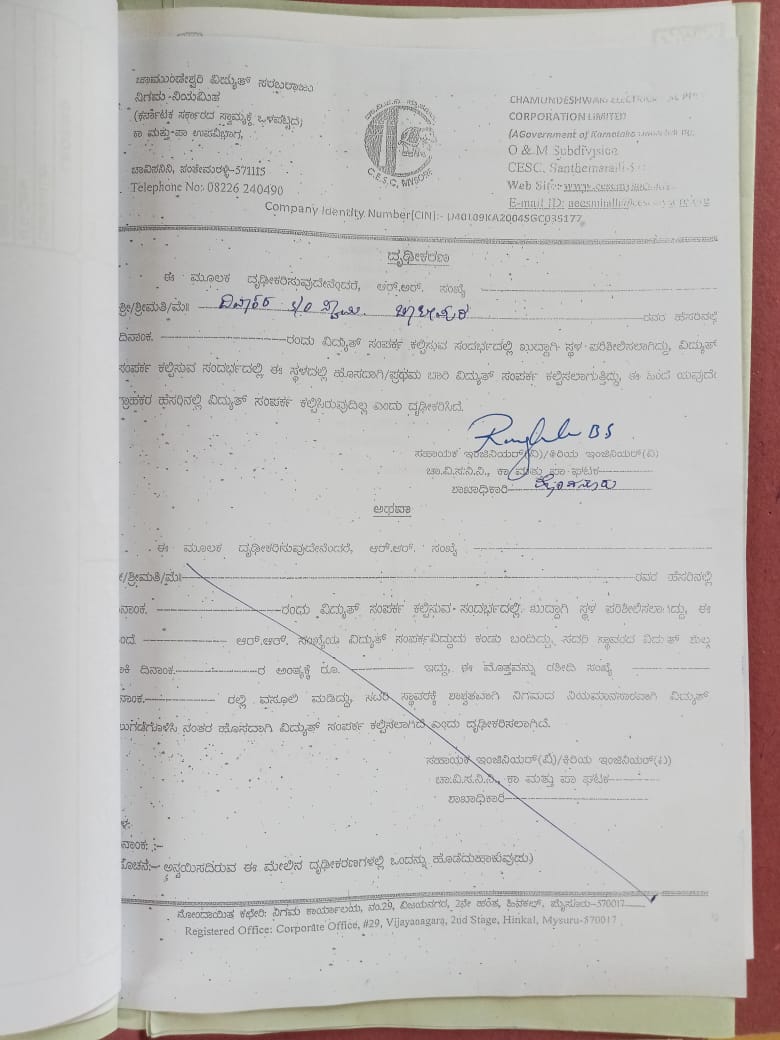 ಚಾಮುಂಡೇಶ್ವರಿ ವಿದ್ಯುತ್ ಸರಬರಾಜು
ನಿಗಮ ನಿಯಮಿತ
(ಕರ್ನಾಟಕ ಸರ್ಕಾರದ ಸ್ವಾಮ್ಯಕ್ಕೆ ಒಳಪಟ್ಟಿದೆ)
ಕಾ ಮತ್ತು ಪಾ ಉಪವಿಭಾಗ,
ಚಾವಿಸನಿನಿ, ಸಂತೇಮರಳ್ಳಿ-571115
Telephone No: 08226 240490
C.E.S.C, MYSORE
CHAMUNDESHWARI
CORPORATION LIMITED
(AGovernment of Karnataka
O & M Subdivision
CESC, Santhemaralli
Web Site:
E-mail ID:
Company Identity Number[CIN]:- U40109KA2004SGC035177
ದೃಢೀಕರಣ
ಈ ಮೂಲಕ ದೃಢೀಕರಿಸುವುದೇನೆಂದರೆ, ಆರ್.ಆರ್. ಸಂಖ್ಯೆ
ಶ್ರೀ/ಶ್ರೀಮತಿ/ಮೆ॥ ರವರ ಹೆಸರಿನಲ್ಲಿ
ದಿನಾಂಕ. ರಂದು ವಿದ್ಯುತ್ ಸಂಪರ್ಕ ಕಲ್ಪಿಸುವ ಸಂದರ್ಭದಲ್ಲಿ ಖುದ್ದಾಗಿ ಸ್ಥಳ ಪರಿಶೀಲಿಸಲಾಗಿದ್ದು, ವಿದ್ಯುತ್
ಸಂಪರ್ಕ ಕಲ್ಪಿಸುವ ಸಂದರ್ಭದಲ್ಲಿ ಈ ಸ್ಥಳದಲ್ಲಿ ಹೊಸದಾಗಿ/ಪ್ರಥಮ ಬಾರಿ ವಿದ್ಯುತ್ ಸಂಪರ್ಕ ಕಲ್ಪಿಸಲಾಗುತ್ತಿದ್ದು, ಈ ಹಿಂದೆ ಯಾವುದೇ
ಗ್ರಾಹಕರ ಹೆಸರಿನಲ್ಲಿ ವಿದ್ಯುತ್ ಸಂಪರ್ಕ ಕಲ್ಪಿಸಿರುವುದಿಲ್ಲ ಎಂದು ದೃಢೀಕರಿಸಿದೆ.
BS
ಸಹಾಯಕ ಇಂಜಿನಿಯರ್(ವಿ)/ಕಿರಿಯ ಇಂಜಿನಿಯರ್(ವಿ)
ಚಾ.ವಿ.ಸ.ನಿ.ನಿ., ಕಾ ಮತ್ತು ಪಾ ಘಟಕ
ಶಾಖಾಧಿಕಾರಿ
ಅಥವಾ
ಈ ಮೂಲಕ ದೃಢೀಕರಿಸುವುದೇನೆಂದರೆ, ಆರ್.ಆರ್. ಸಂಖ್ಯೆ
/ಶ್ರೀಮತಿ/ಮೆ॥ ರವರ ಹೆಸರಿನಲ್ಲಿ
ನಾಂಕ. ರಂದು ವಿದ್ಯುತ್ ಸಂಪರ್ಕ ಕಲ್ಪಿಸುವ ಸಂದರ್ಭದಲ್ಲಿ ಖುದ್ದಾಗಿ ಸ್ಥಳ ಪರಿಶೀಲಿಸಲಾಗಿದ್ದು, ಈ
ಂದೆ ಆರ್.ಆರ್. ಸಂಖ್ಯೆಯ ವಿದ್ಯುತ್ ಸಂಪರ್ಕವಿದ್ದುದು ಕಂಡು ಬಂದಿದ್ದು, ಸದರಿ ಸ್ಥಾವರದ ವಿದ್ಯುತ್ ಶುಲ್ಕ
ಾಕಿ ದಿನಾಂಕ. ರ ಅಂತ್ಯಕ್ಕೆ ರೂ. ಇದ್ದು, ಈ ಮೊತ್ತವನ್ನು ರಶೀದಿ ಸಂಖ್ಯೆ
ನಾಂಕ. ರಲ್ಲಿ ವಸೂಲಿ ಮಡಿದ್ದು, ಸದರಿ ಸ್ಥಾವರಕ್ಕೆ ಶಾಶ್ವತವಾಗಿ ನಿಗಮದ ನಿಯಮಾನುಸಾರವಾಗಿ ವಿದ್ಯುತ್
ಲುಗಡೆಗೊಳಿಸಿ ನಂತರ ಹೊಸದಾಗಿ ವಿದ್ಯುತ್ ಸಂಪರ್ಕ ಕಲ್ಪಿಸಲಾಗಿದೆ ಎಂದು ದೃಢೀಕರಿಸಲಾಗಿದೆ.
ಸಹಾಯಕ ಇಂಜಿನಿಯರ್(ವಿ)/ಕಿರಿಯ ಇಂಜಿನಿಯರ್(ವಿ)
ಚಾ.ವಿ.ಸ.ನಿ.ನಿ., ಕಾ ಮತ್ತು ಪಾ ಘಟಕ
ಶಾಖಾಧಿಕಾರಿ
ಳ:
ನಾಂಕ: :-
ೂಚನೆ:- ಅನ್ವಯಿಸದಿರುವ ಈ ಮೇಲಿನ ದೃಢೀಕರಣಗಳಲ್ಲಿ ಒಂದನ್ನು ಹೊಡೆದುಹಾಕುವುದು)
ನೋಂದಾಯಿತ ಕಛೇರಿ: ನಿಗಮ ಕಾರ್ಯಾಲಯ, ನಂ.29, ವಿಜಯನಗರ, 2ನೇ ಹಂತ, ಹಿನಕಲ್, ಮೈಸೂರು-570017
Registered Office: Corporate Office, #29, Vijayanagara, 2nd Stage, Hinkal, Mysuru-570017